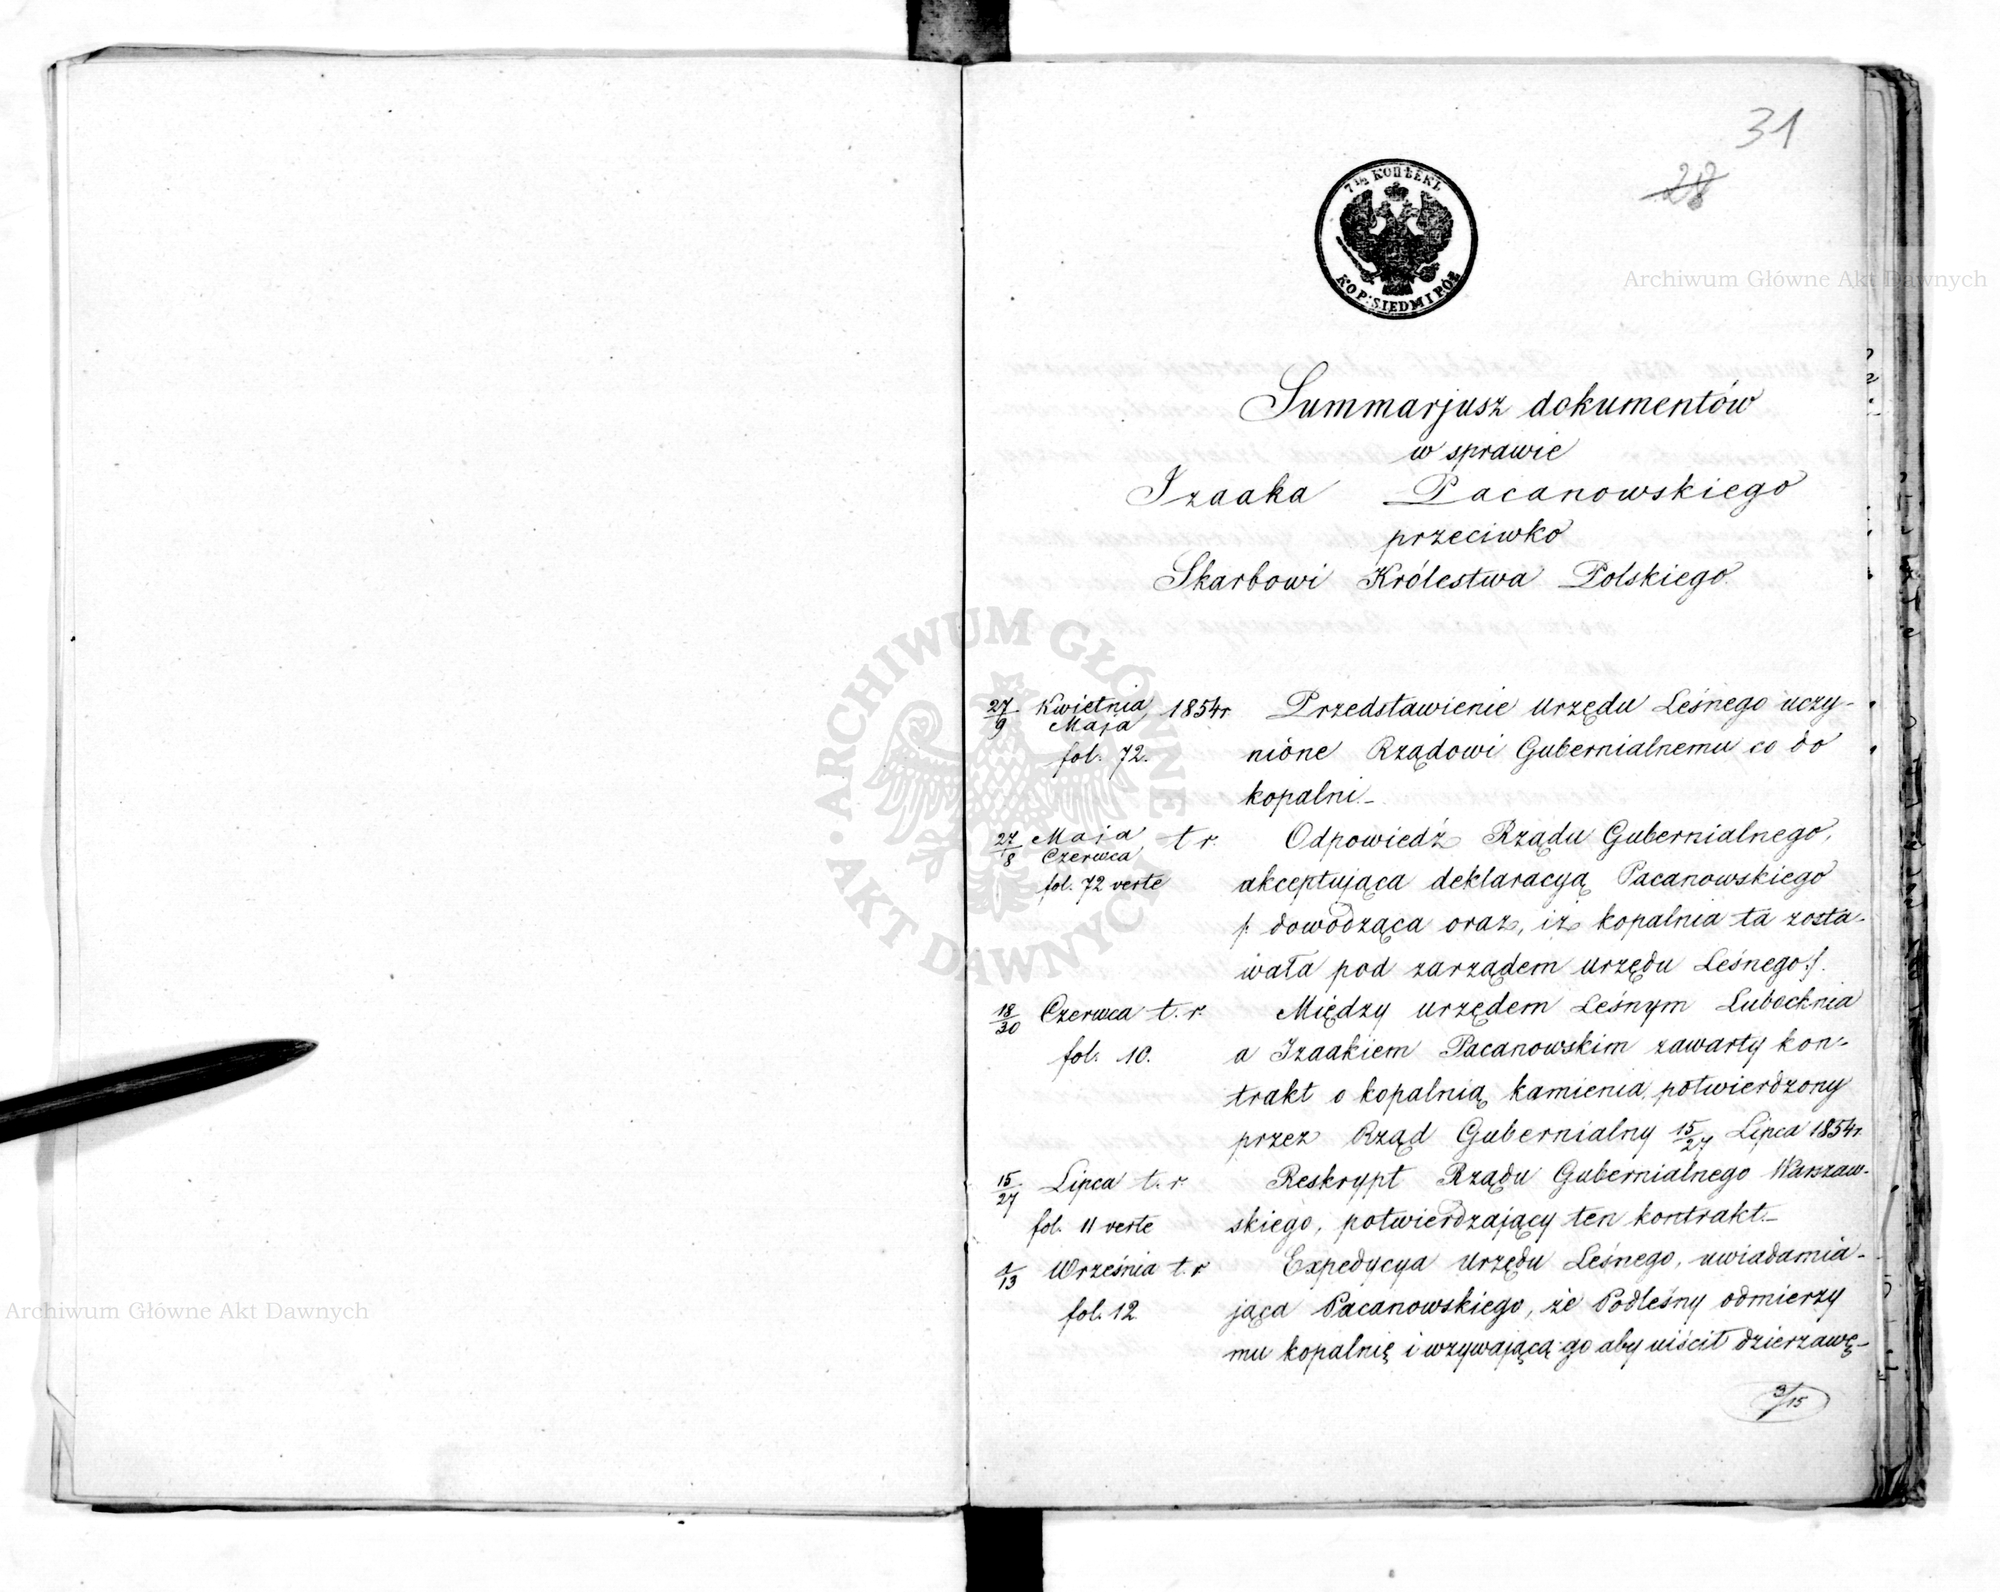 31
28
7½ КОПѢЕКЪ
KOP: SIEDM I PÓŁ
Archiwum Główne Akt Dawnych
Summarjusz dokumentów
w sprawie
Izaaka Pacanowskiego
przeciwko
Skarbowi Królestwa Polskiego
ARCHIWUM GŁÓWNE AKT DAWNYCH
27/9 Kwietnia/Maja 1854r Przedstawienie Urzędu Leśnego uczy-
fol. 72. nione Rządowi Gubernialnemu co do
kopalni.-
27/8 Maja/Czerwca t r. Odpowiedź Rządu Gubernialnego,
fol. 72 verte akceptująca deklaracyą Pacanowskiego
/: dowodząca oraz, iż kopalnia ta zosta-
wała pod zarządem Urzędu Leśnego:/.
18/30 Czerwca t. r. Między Urzędem Leśnym Lubochnia
fol. 10. a Izaakiem Pacanowskim zawarty kon-
trakt o kopalnią kamienia, potwierdzony
przez Rząd Gubernialny 15/27 Lipca 1854r.
15/27 Lipca t. r. Reskrypt Rządu Gubernialnego Warszaw-
fol. 11 verte skiego, potwierdzający ten kontrakt.-
1/13 Września t. r. Expedycya Urzędu Leśnego, uwiadamia-
fol. 12. jąca Pacanowskiego, że Podleśny odmierzy
mu kopalnię i wzywającą go aby uiścił dzierzawę-
Archiwum Główne Akt Dawnych
3/15